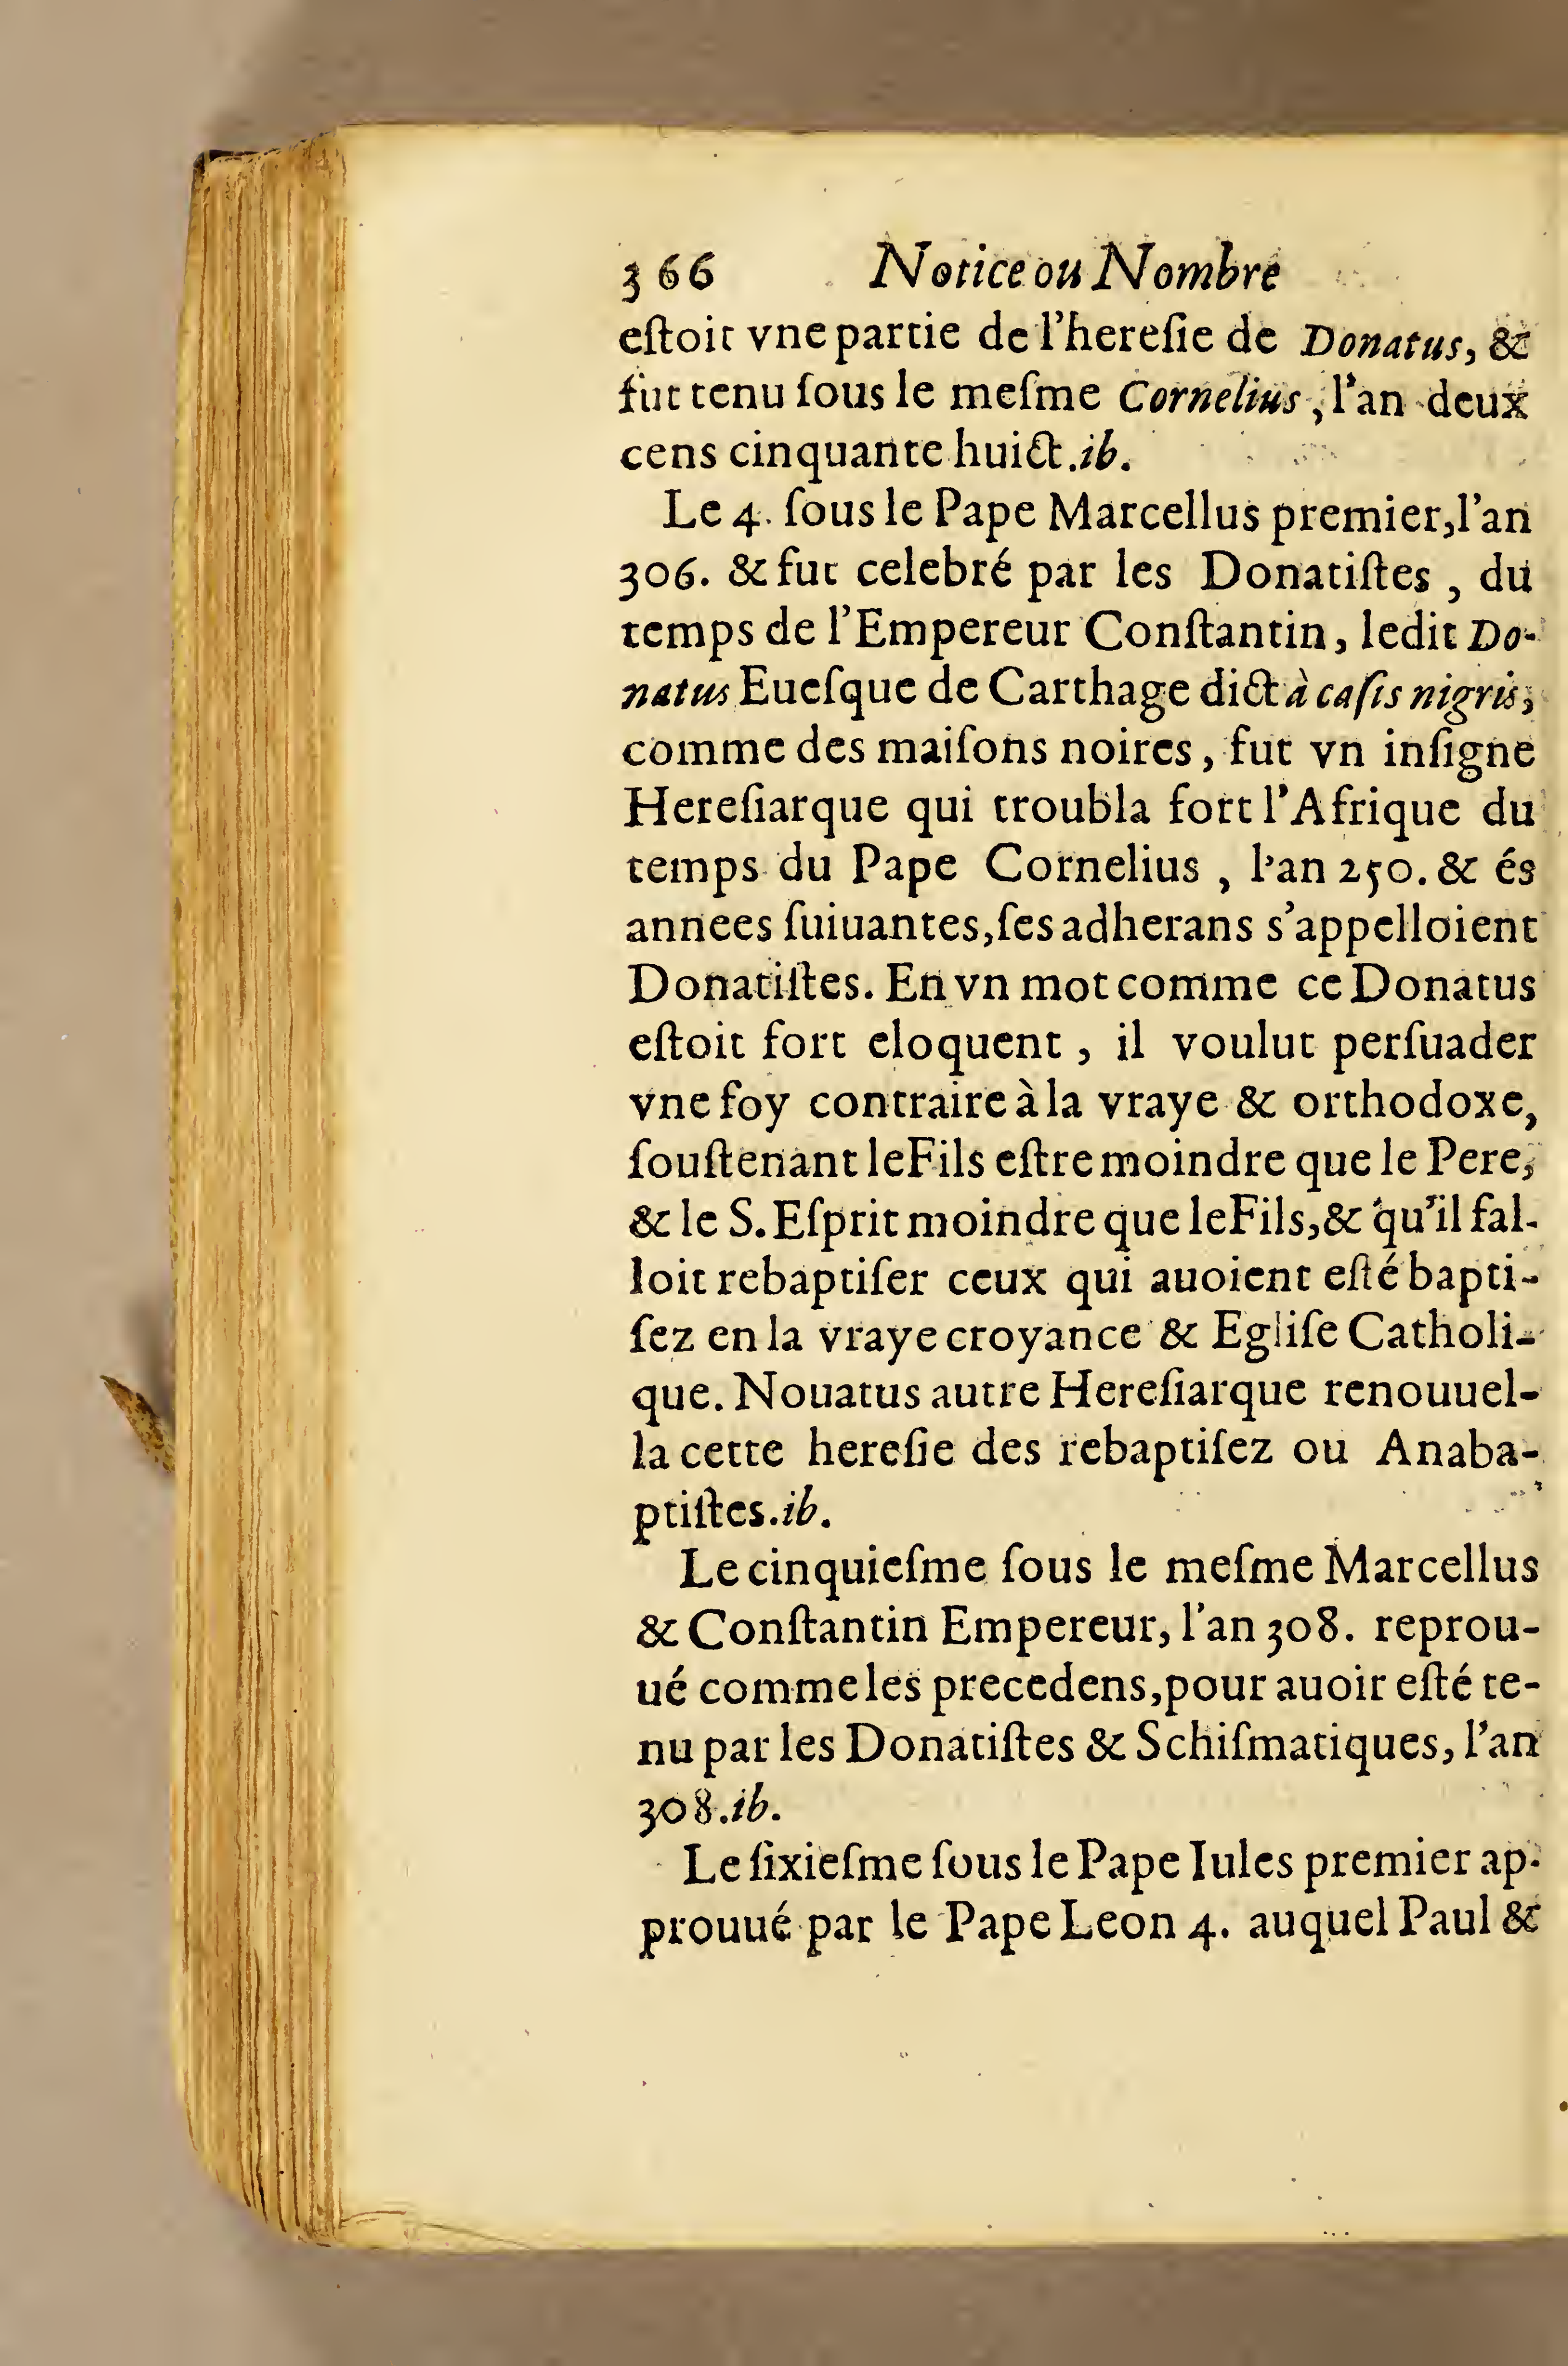 366 Notice ou Nombre
eſtoit vne partie de l'hereſie de Donatus, &
fut tenu ſous le meſme Cornelius, l'an deux
cens cinquante huict.ib.
Le 4. ſous le Pape Marcellus premier, l'an
306. & fut celebré par les Donatiſtes, du
temps de l'Empereur Conſtantin, ledit Do-
natus Eueſque de Carthage dict à caſis nigris,
comme des maiſons noires, fut vn inſigne
Hereſiarque qui troubla fort l'Afrique du
temps du Pape Cornelius, l'an 250. & és
annees ſuiuantes, ſes adherans s'appelloient
Donatiſtes. En vn mot comme ce Donatus
eſtoit fort eloquent, il voulut perſuader
vne foy contraire à la vraye & orthodoxe,
ſouſtenant le Fils eſtre moindre que le Pere,
& le S. Eſprit moindre que le Fils, & qu'il fal-
loit rebaptiſer ceux qui auoient eſté bapti-
ſez en la vraye croyance & Egliſe Catholi-
que. Nouatus autre Hereſiarque renouuel-
la cette hereſie des rebaptiſez ou Anaba-
ptiſtes.ib.
Le cinquieſme ſous le meſme Marcellus
& Conſtantin Empereur, l'an 308. reprou-
ué comme les precedens, pour auoir eſté te-
nu par les Donatiſtes & Schiſmatiques, l'an
308.ib.
Le ſixieſme ſous le Pape Iules premier ap-
prouué par le Pape Leon 4. auquel Paul &